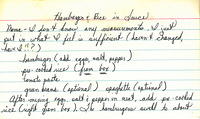 Hamburger & Rice in Sauce
None - I don't know any measurements. I just
put in what I feel is sufficient (haven't changed,
have I??)
hamburger (add egg, salt, pepper)
pre-cooked rice (from box)
tomato paste
green beans (optional) spaghetti (optional)
After mixing egg, salt & pepper in meat, add pre-cooked
rice (right from box). The hamburgers swell to about